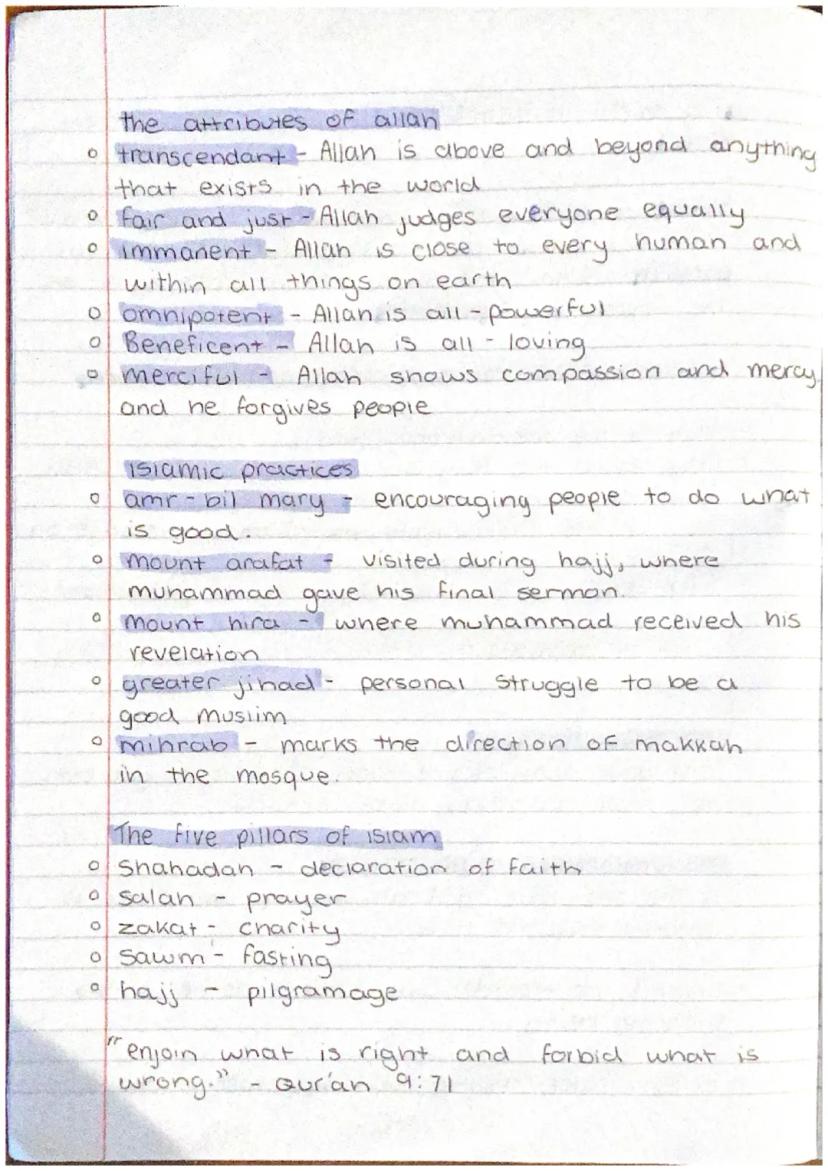 the attributes of allah
transcendant - Allah is above and beyond anything
that exists in the world
fair and just - Allah judges everyone equally
immanent - Allah is close to every human and
within all things on earth
omnipotent - Allah is all-powerful
Beneficent - Allah is all-loving
merciful - Allah shows compassion and mercy
and he forgives people
islamic practices
amr-bil mary - encouraging people to do what
is good.
mount arafat - visited during hajj, where
muhammad gave his final sermon.
mount hira - where muhammad received his
revelation
greater jihad - personal struggle to be a
good muslim
mihrab - marks the direction of makkah
in the mosque.
The five pillars of islam
Shahadah - declaration of faith
salah - prayer
zakat - charity
Sawm - fasting
hajj - pilgramage
"enjoin what is right and forbid what is
wrong." - Qur'an 9:71